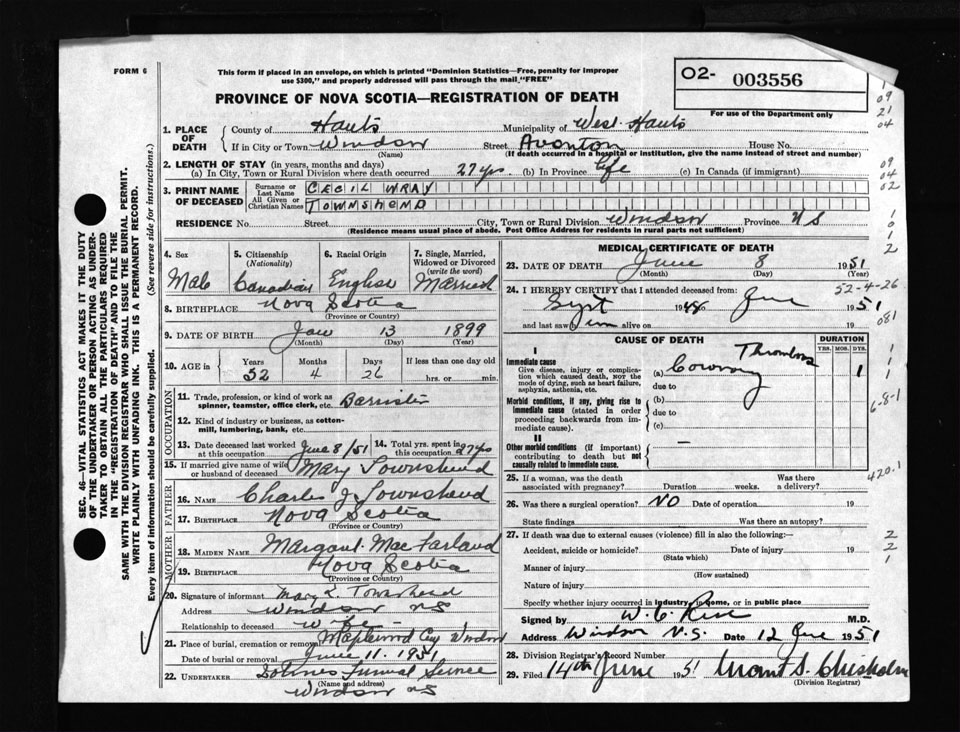 FORM 6
This form if placed in an envelope, on which is printed "Dominion Statistics—Free, penalty for improper
use $300," and properly addressed will pass through the mail "FREE"
O2- 003556
PROVINCE OF NOVA SCOTIA—REGISTRATION OF DEATH
For use of the Department only
1. PLACE OF DEATH County of Hants Municipality of West Hants
If in City or Town Windsor Street Avonton House No.
(Name) (If death occurred in a hospital or institution, give the name instead of street and number)
2. LENGTH OF STAY (in years, months and days)
(a) In City, Town or Rural Division where death occurred 27 yrs. (b) In Province life (c) In Canada (if immigrant)
3. PRINT NAME OF DECEASED Surname or Last Name CECIL WRAY
All Given or Christian Names TOWNSHEND
RESIDENCE No. Street City, Town or Rural Division Windsor Province NS
(Residence means usual place of abode. Post Office Address for residents in rural parts not sufficient)
4. Sex Male
5. Citizenship (Nationality) Canadian
6. Racial Origin English
7. Single, Married, Widowed or Divorced (write the word) Married
8. BIRTHPLACE Nova Scotia
(Province or Country)
9. DATE OF BIRTH Jan 13 1899
(Month) (Day) (Year)
10. AGE in Years Months Days If less than one day old
52 4 26 hrs. or min.
OCCUPATION
11. Trade, profession or kind of work as spinner, teamster, office clerk, etc. Barrister
12. Kind of industry or business, as cotton-mill, lumbering, bank, etc.
13. Date deceased last worked at this occupation June 8/51
14. Total yrs. spent in this occupation 27 yrs
15. If married give name of wife or husband of deceased Mary Townshend
FATHER
16. NAME Charles J Townshend
17. BIRTHPLACE Nova Scotia
(Province or Country)
MOTHER
18. MAIDEN NAME Margaret MacFarland
19. BIRTHPLACE Nova Scotia
(Province or Country)
20. Signature of informant Mary L. Townshend
Address Windsor NS
Relationship to deceased Wife
21. Place of burial, cremation or removal Maplewood Cey Windsor
Date of burial or removal June 11. 1951
22. UNDERTAKER Funeral Service
(Name and address)
Windsor NS
MEDICAL CERTIFICATE OF DEATH
23. DATE OF DEATH June 8 1951
(Month) (Day) (Year)
24. I HEREBY CERTIFY that I attended deceased from: 52-4-26
Sept 1948 June 1951
and last saw him alive on 19
CAUSE OF DEATH DURATION
YRS. MOS. DYS.
I
Immediate cause
Give disease, injury or complication which caused death, NOT the mode of dying, such as heart failure, asphyxia, asthenia, etc.
(a) Coronary Thrombosis 1
due to
Morbid conditions, if any, giving rise to immediate cause (stated in order proceeding backwards from immediate cause).
(b)
due to
(c)
II
Other morbid conditions (if important) contributing to death but not causally related to immediate cause. —
25. If a woman, was the death associated with pregnancy? Duration weeks. Was there a delivery?
26. Was there a surgical operation? NO Date of operation 19
State findings Was there an autopsy?
27. If death was due to external causes (violence) fill in also the following:—
Accident, suicide or homicide? Date of injury 19
(State which)
Manner of injury
(How sustained)
Nature of injury
Specify whether injury occurred in industry, in home, or in public place
Signed by M.D.
Address Windsor N.S. Date 12 June 1951
28. Division Registrar's Record Number
29. Filed 14th June 1951 Grant S. Chisholm
(Division Registrar)
SEC. 46—VITAL STATISTICS ACT MAKES IT THE DUTY
OF THE UNDERTAKER OR PERSON ACTING AS UNDER-
TAKER TO OBTAIN ALL THE PARTICULARS REQUIRED
IN THE "REGISTRATION OF DEATH" AND TO FILE THE
SAME WITH THE DIVISION REGISTRAR WHO SHALL ISSUE THE BURIAL PERMIT.
WRITE PLAINLY WITH UNFADING INK. THIS IS A PERMANENT RECORD.
Every item of information should be carefully supplied. (See reverse side for instructions.)
1
09
21
04
09
04
02
1
0
1
2
081
1
1
1
6-8-1
420.1
2
2
1